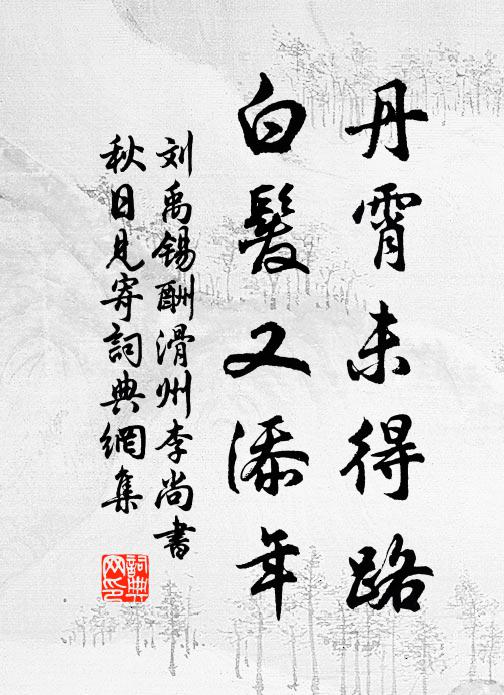 丹霄未得路
白髮又添年
刘禹锡酬滑州李尚書
秋日見寄詞典網集
詞典
网印